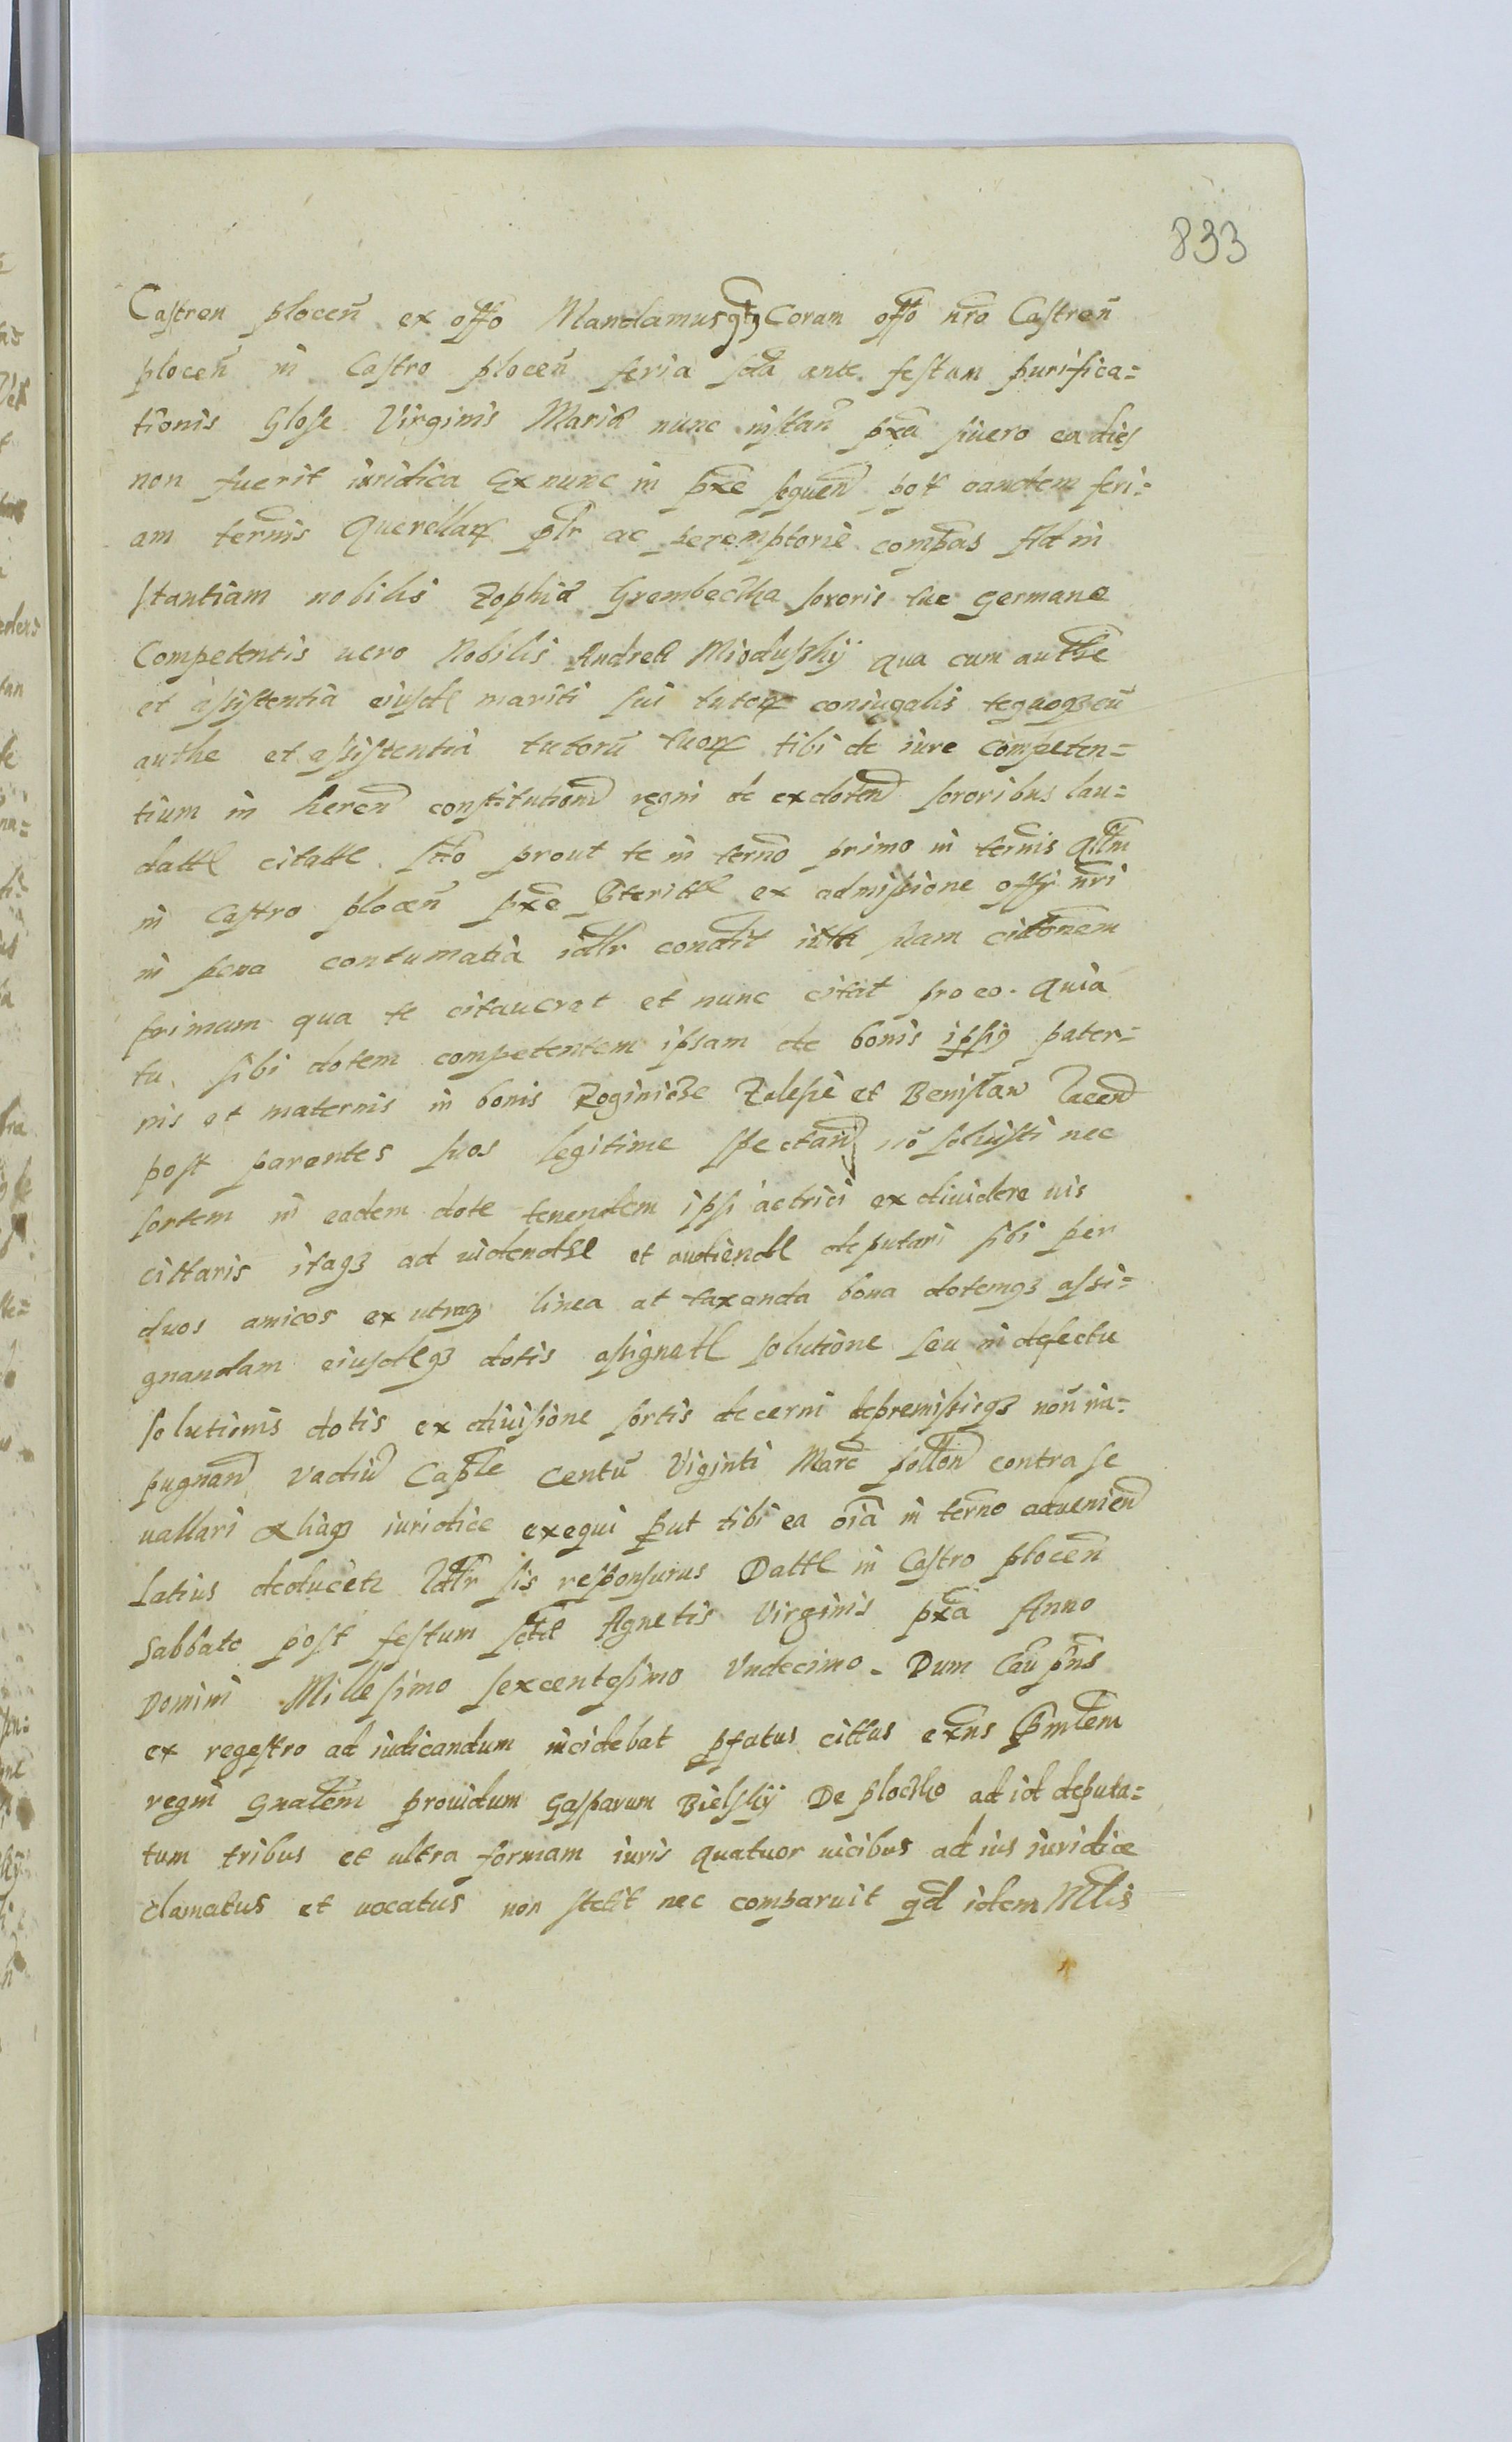 833
Castren plocen̄ ex offo Mandamus qtꝫ Coram offo nr̄o Castren̄
plocen̄ in Castro plocen̄ feria scda ante festum purifica=
tionis Glose Virginis Mariæ nunc instan̄ pxa siuero ea dies
non fuerit iuridica Ex nunc in pxe sequen̄ post eandem feri=
am termis Querellaꝝ plr ac peremptorie compas Ad in
stantiam nobilis Zophiæ Grembeczka sororis tue germane
Competentis uero Nobilis Andreæ Miodusky qua cum authe
et assistentia eiusdē mariti sui tutoꝝ coniugalis teqꝫ cū
authe et assistentia tutorū tuoꝝ tibi de iure competen=
tium in heren̄ constitutionū regni de exdoten̄ sororibus lau=
dattæ citatte scto prout te in terno primo in termis qllm
in Castro plocen̄ pxe pteritte ex admissione offy nri
in pena contumatia idlr condit iuxta suam cittonem
primam qua te citauerat et nunc citat pro eo. Quia
tu sibi dotem competentem ipsam de bonis ipsiꝰ pater=
nis et maternis in bonis Roginicze Zalesie et Benislaw Iacen̄
post parentes suos legitime spectan̄ nō soluisti nec
sortem in eadem dote tenendem ipsi actrici ex diuidere uis
cittaris itaqꝫ ad uidendū et audiendū deputari sibi per
duos amicos ex utraqꝫ linea at taxanda bona dotemqꝫ assi=
gnandam eiusdēqꝫ dotis assignatē solutione seu in defectu
solutionis dotis ex diuisione sortis decerni depremissisqꝫ non̄ im=
pugnan̄ vadiū Caple Centū Viginti Marc pollon̄ contra se
uallari aliaqꝫ iuridice exequi put tibi ea oīa in terno aduenien̄
latius deducetē Idlr sis responsurus Dattē in Castro plocen̄
sabbato post festum sctæ Agnetis Virginis pxa Anno
Domini Millesimo sexcentesimo Vndecimo. Dum Cau pn̄s
ex regestro ad iudicandum incidebat pfatus cittus exn̄s Pmlem
regni gnalem prouidum Gasparum Bielsky De plocko ad id deputa=
tum tribus et ultra formam iuris quatuor uicibus ad ius iuridice
clamatus et uocatus non stetit nec comparuit qd idem Mlis